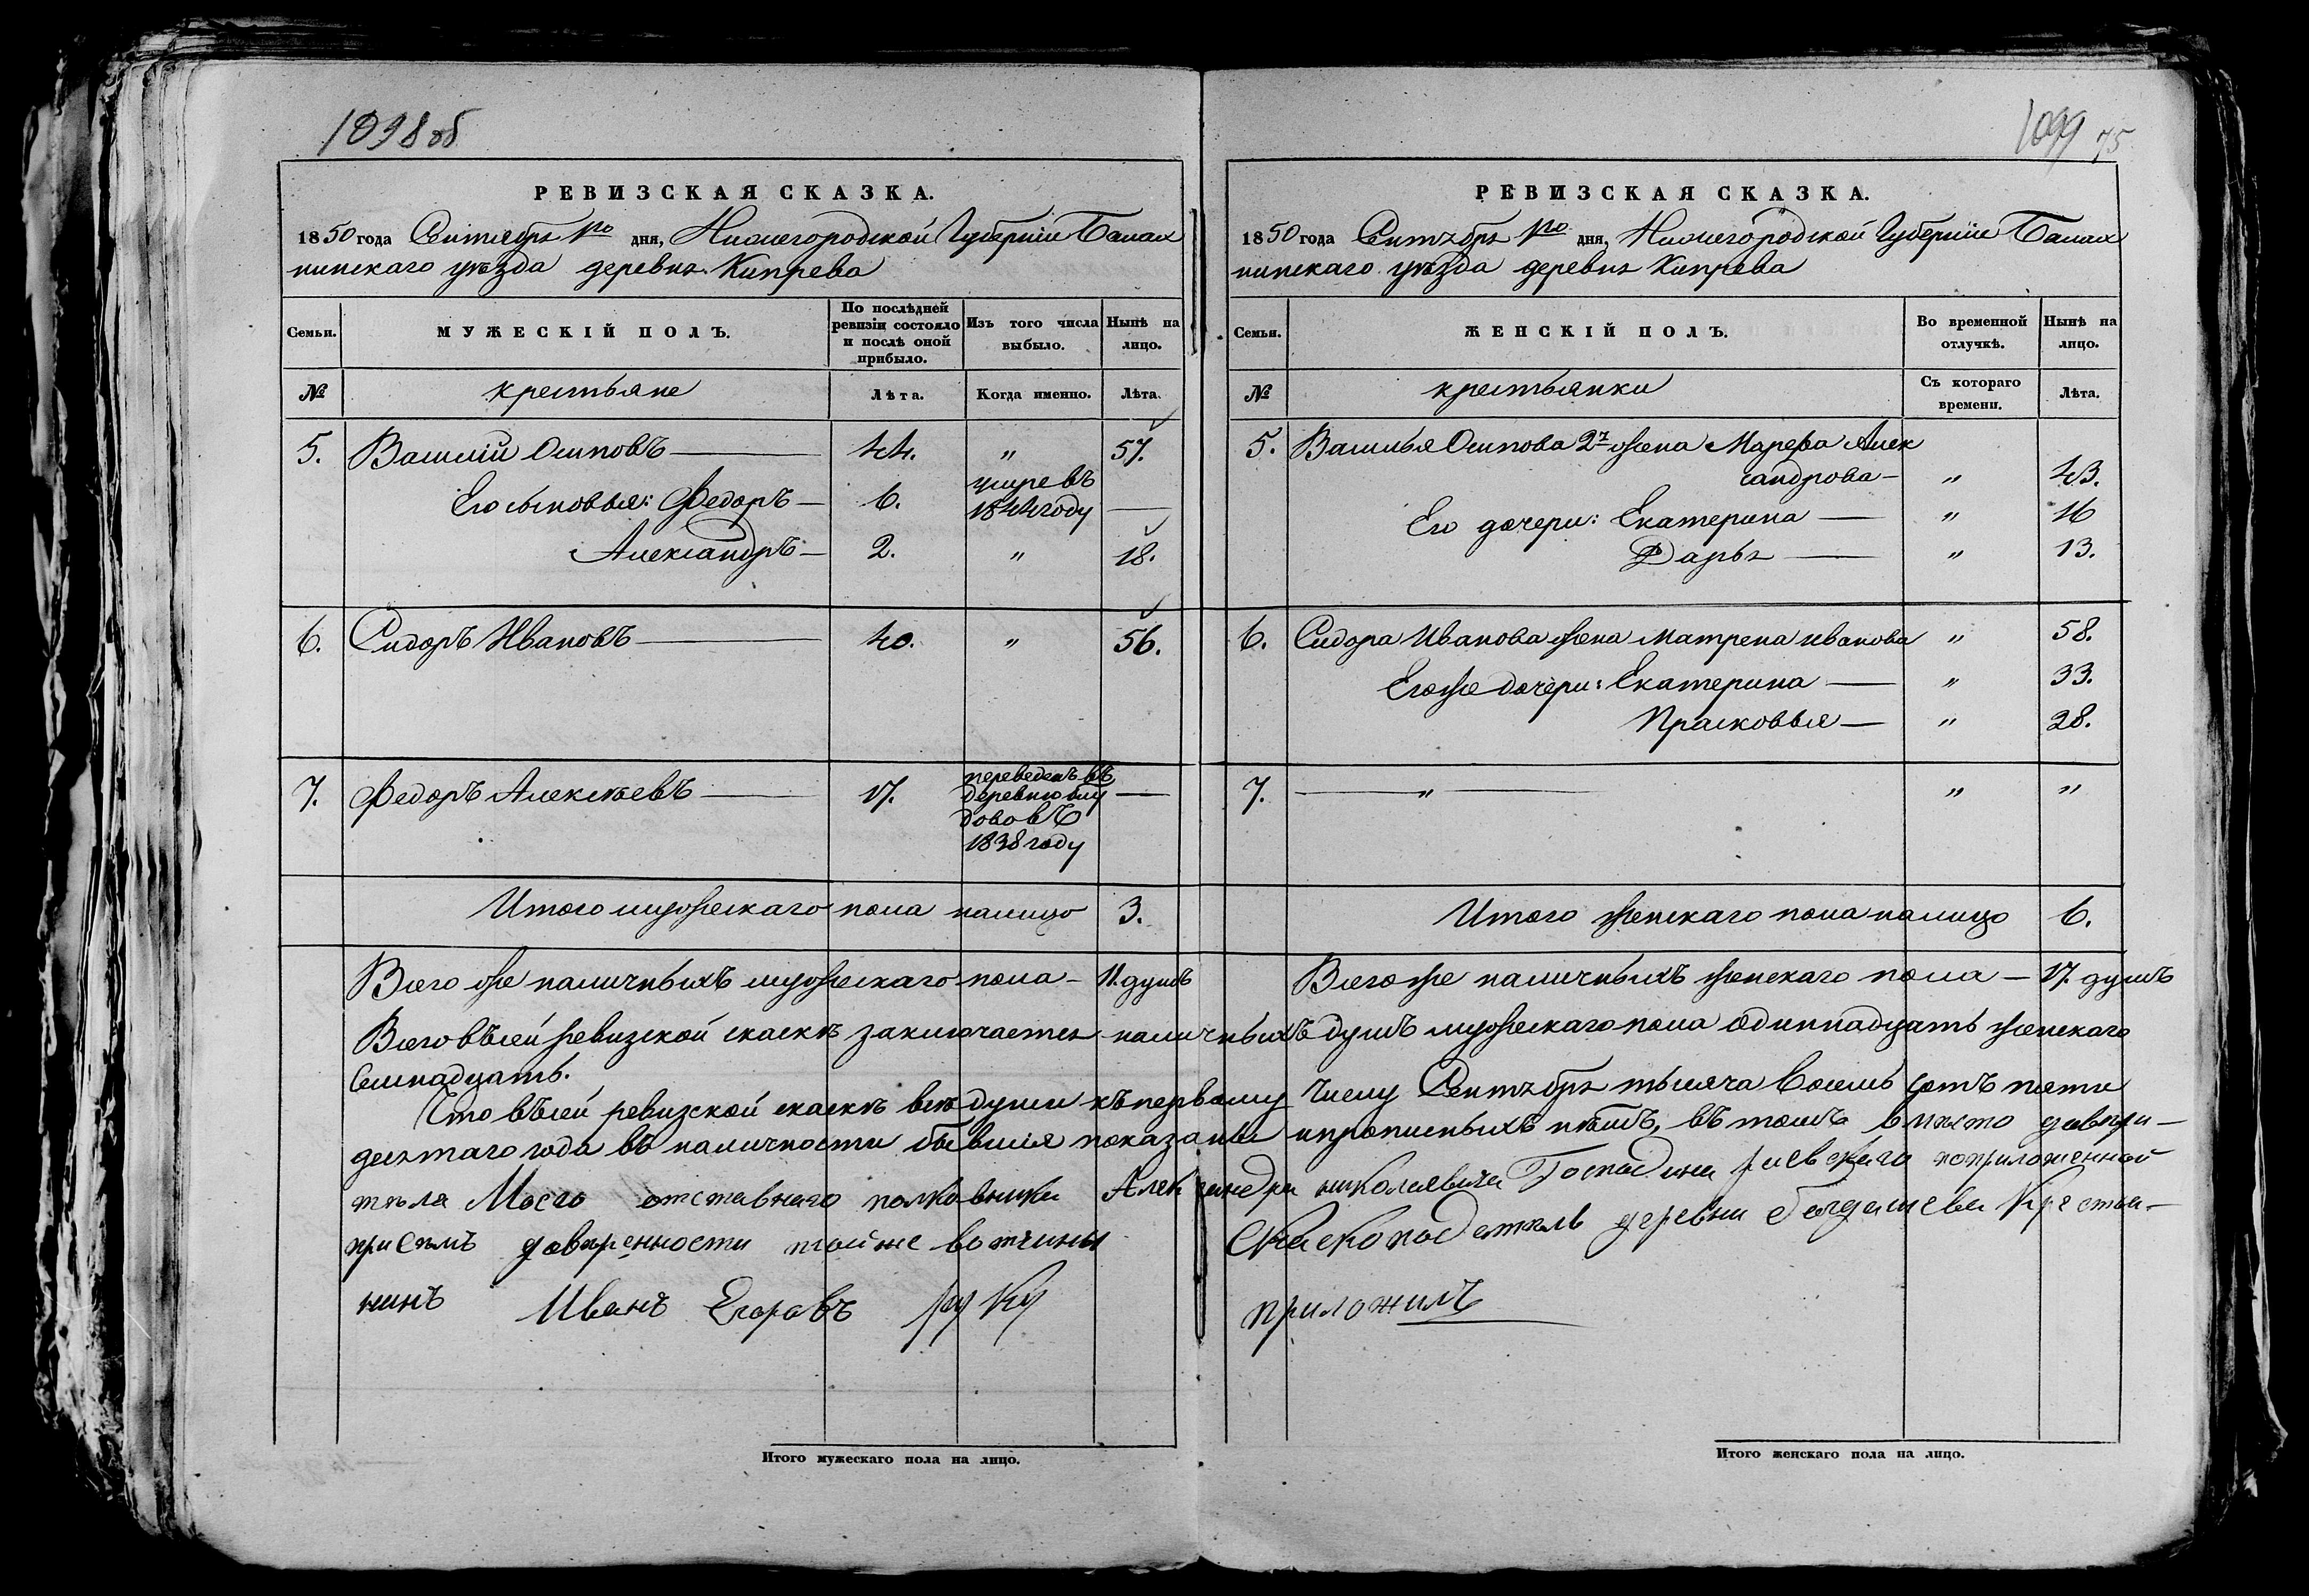 1098 об
РЕВИЗСКАЯ СКАЗКА.
1850 года Сентября 1го дня, Нижегородской Губернии Балах
нинскаго уѣзда деревня Кипрева
Семьи.
МУЖЕСКІЙ ПОЛЪ.
По послѣдней
ревизіи состояло
и послѣ оной
прибыло.
Изъ того числа
выбыло.
Нынѣ на
лицо.
№
крестьяне
Лѣта.
Когда именно.
Лѣта.
5. Василій Осиповъ — 44. " 57.
Его сыновья: Федоръ — 6. умре въ
1844 году —
Александръ — 2. " 18.
6. Сидоръ Ивановъ — 40. " 56.
7. Федоръ Алексѣевъ — 17. переведенъ въ
деревню
1838 году —
Итого мужескаго пола налицо 3.
Всего же наличныхъ мужескаго пола — 11. душъ
1099 75
РЕВИЗСКАЯ СКАЗКА.
1850 года Сентября 1го дня, Нижегородской Губерніи Балах
нинскаго уѣзда деревня Кипрева
Семьи.
ЖЕНСКІЙ ПОЛЪ.
Во временной
отлучкѣ.
Нынѣ на
лицо.
№
крестьянки
Съ котораго
времени.
Лѣта.
5. Василья Осипова 2я жена Марефа Алек
сандрова — " 43.
Его дочери: Екатерина — " 16
Дарья — " 13.
6. Сидора Иванова жена Матрена Иванова " 58.
Его же дочери: Екатерина — " 33.
Прасковья — " 28.
7. — " — " "
Итого женскаго пола налицо 6.
Всего же наличныхъ женскаго пола — 17. душъ
Всего въ сей ревизской скаскѣ заключается наличныхъ душъ мужескаго пола одиннадцать женскаго
Семнадцать.
Что въ сей ревизской скаскѣ всѣ души къ первому числу Сентября тысяча восемь сотъ пяти
десятаго года въ наличности бывшія показаны и прописныхъ нѣтъ, въ томъ вмѣсто довѣри-
теля Моего отставнаго полковника Александра николаевича Господина по приложенной
при семъ довѣренности той же вотчины Скаско податель деревни крестья-
нинъ Иванъ Егоровъ руку приложилъ
Итого мужескаго пола на лицо.
Итого женскаго пола на лицо.